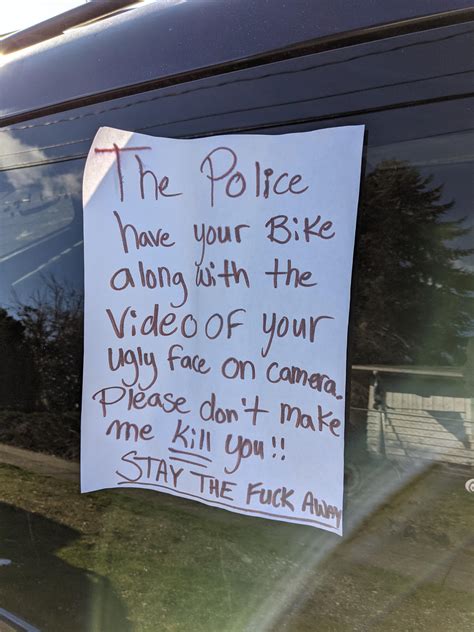 The Police
have your Bike
along with the
Video of your
ugly face on camera.
Please don't make
me Kill you!!
STAY THE FUCK AWAY